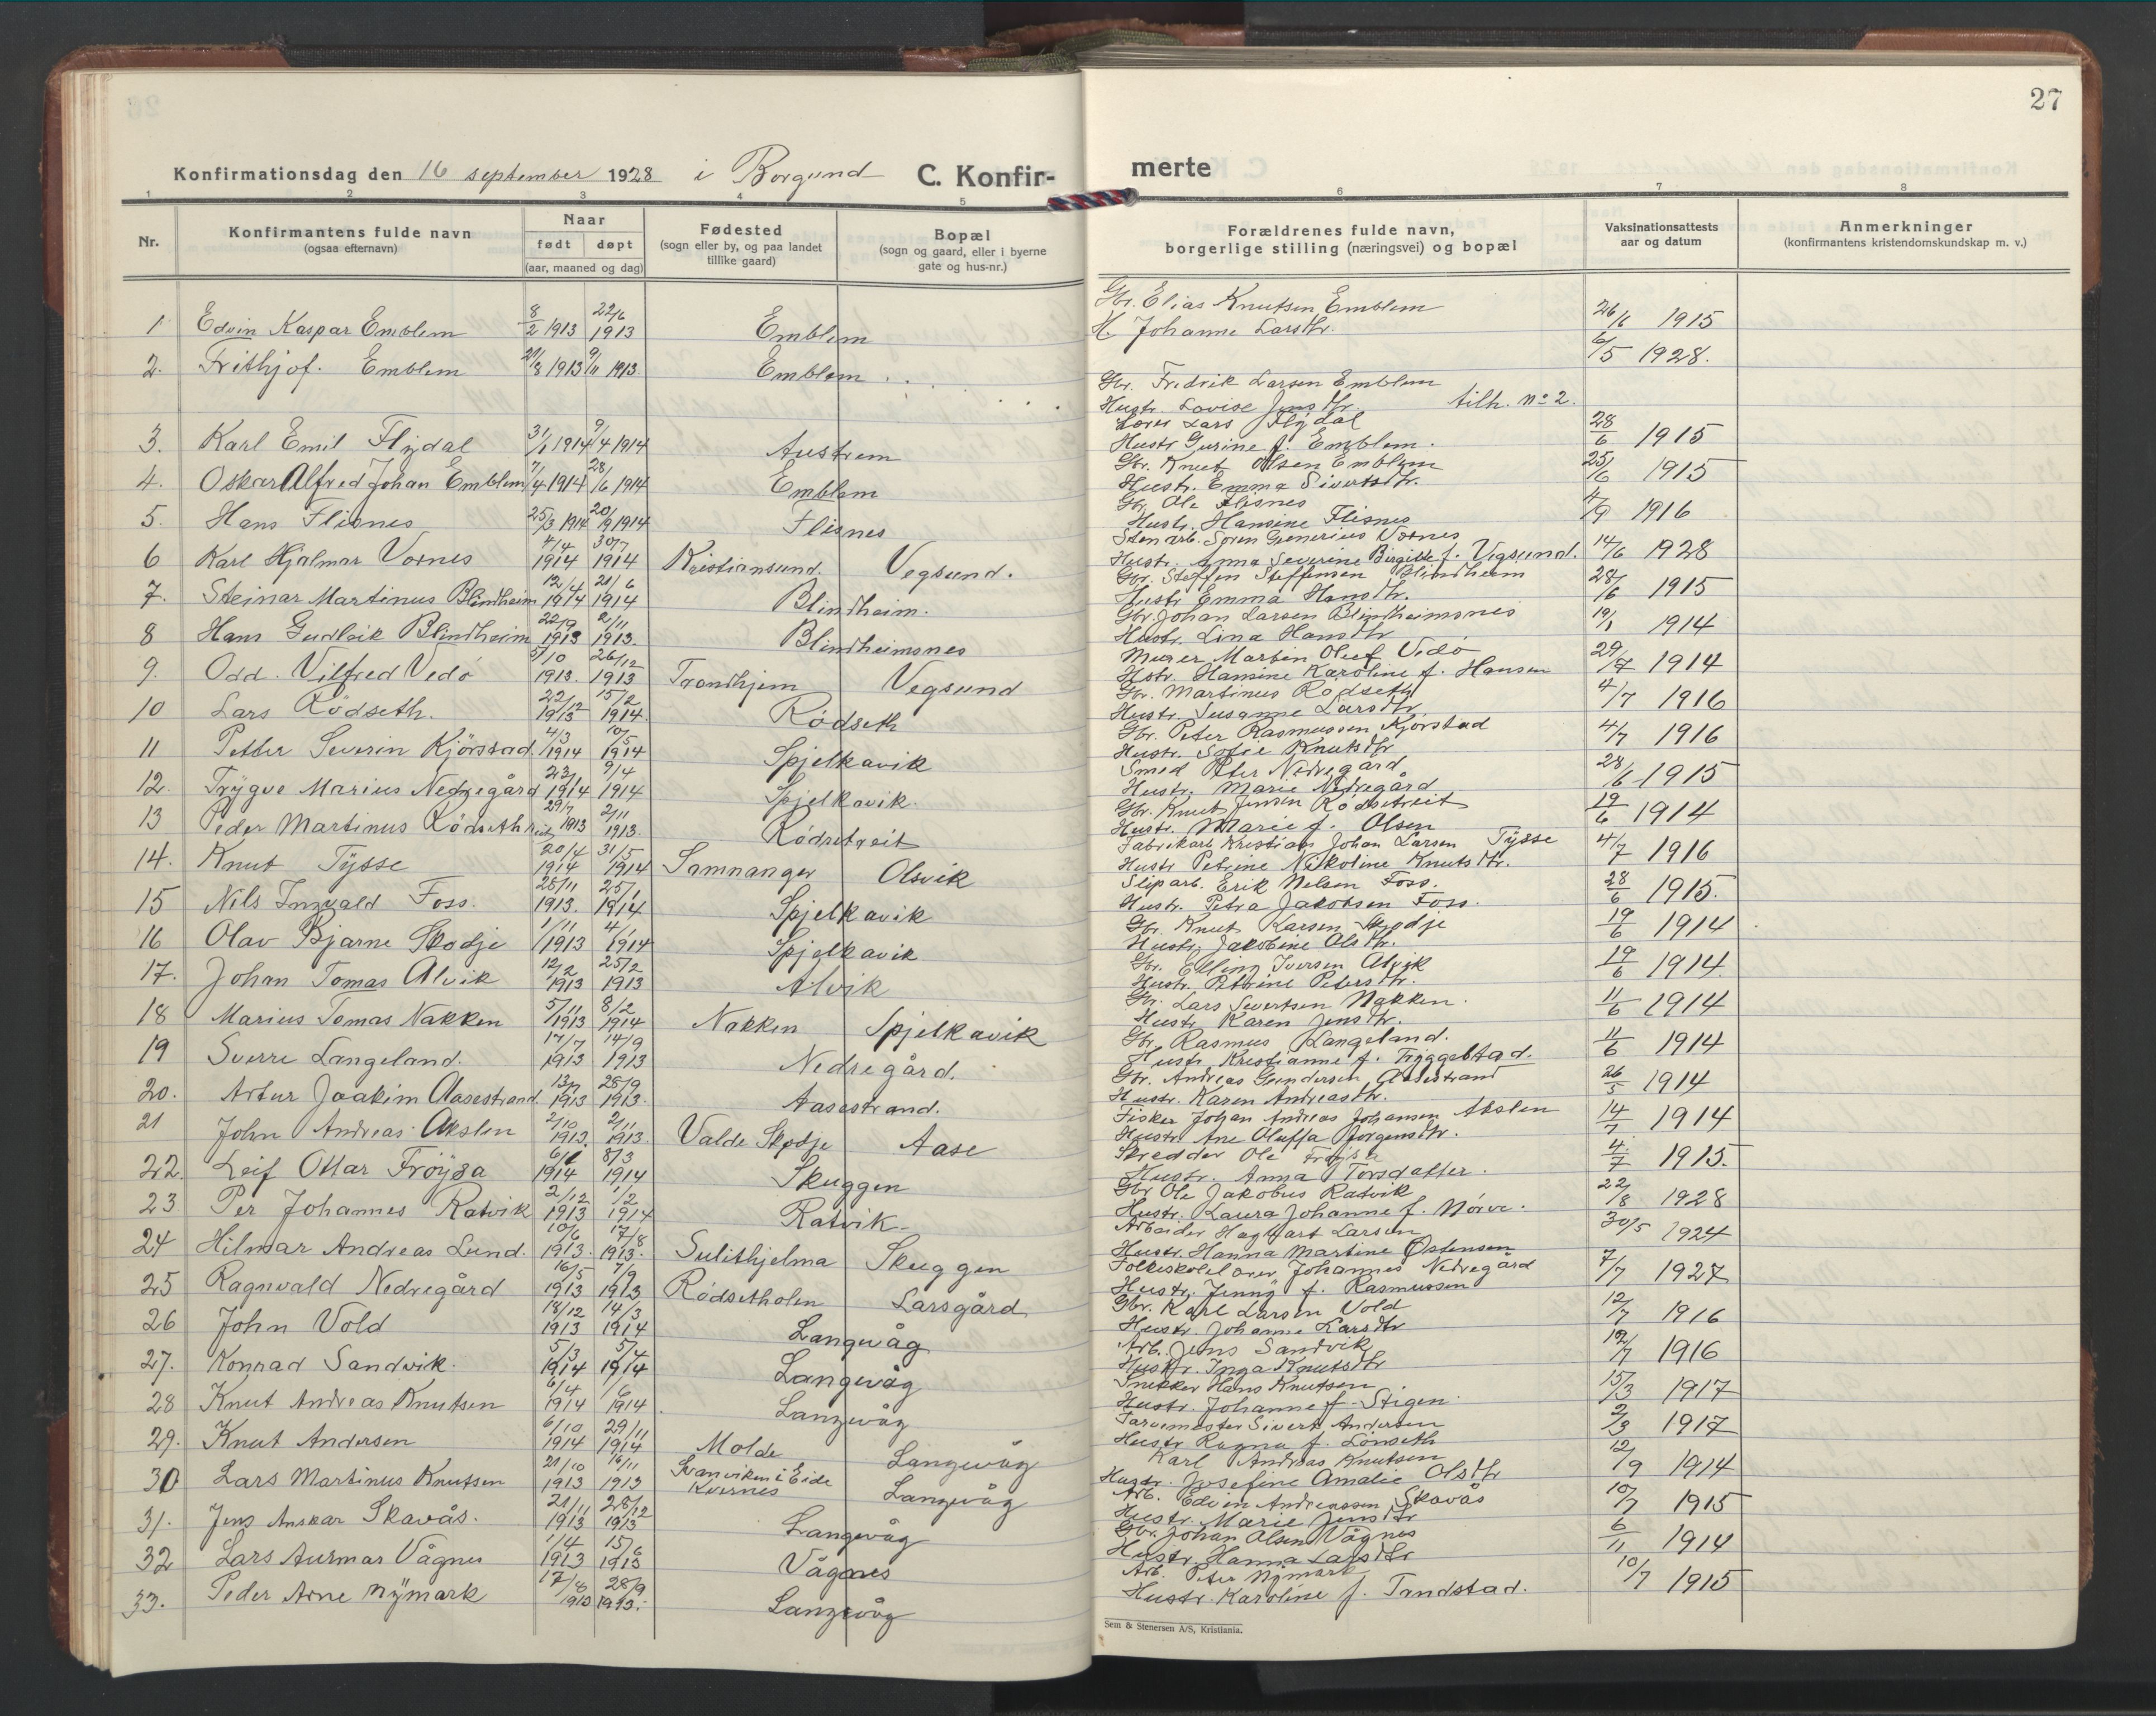 27
Konfirmationsdag den 16 september 1928 i Borgund C. Konfir-
merte
1 2 3 4 5
6 7 8
Nr.
Konfirmantens fulde navn
(ogsaa efternavn)
Naar
født døpt
(aar, maaned og dag)
Fødested
(sogn eller by, og paa landet
tillike gaard)
Bopæl
(sogn og gaard, eller i byerne
gate og hus-nr.)
Forældrenes fulde navn,
borgerlige stilling (næringsvei) og bopæl
Vaksinationsattests
aar og datum
Anmerkninger
(konfirmantens kristendomskundskap m. v.)
1 Edvin Kaspar Emblem 8/2 1913 22/6 1913 Emblem
2. Frithjof. Emblem 21/8 1913 9/11 1913. Emblem
3. Karl Emil Flydal 31/1 1914 9/4 1914 Austrem
4. Oskar Alfred Johan Emblem 7/4 1914 28/6 1914 Emblem
5. Hans Flisnes 25/3 1914 20/9 1914 Flisnes
6 Karl Hjalmar Vornes 4/4 1914 30/7 1914 Kristiansund. Vegsund.
7. Steinar Martinus Blindheim 12/4 1914 21/6 1914 Blindheim.
8 Hans Gudleik Blindheim 22/9 1913 2/11 1913. Blindheimsnes
9. Odd. Vilfred Vedø 5/10 1913. 26/12 1913 Trondhjem Vegsund
10 Lars Rödseth. 22/12 1913 15/2 1914. Rödseth
11 Petter Severin Kjörstad. 4/3 1914 10/5 1914 Spjelkavik
12. Trygve Marius Nedregård 23/1 1914 9/4 1914 Spjelkavik.
13 Peder Martinus Rödsethreit 29/7 1913 2/11 1913. Rödsetreit
14. Knut Tysse 20/4 1914 31/5 1914 Samnanger Olsvik
15 Nils Ingvald Foss. 25/11 1913. 25/1 1914 Spjelkavik
16 Olav Bjarne Skodje 1/11 1913 4/1 1914 Spjelkavik
17. Johan Tomas Alvik 12/2 1913 25/2 1913 Alvik
18 Marius Tomas Nakken 5/11 1913 8/2 1914 Nakken Spjelkavik
19 Sverre Langeland. 17/7 1913 14/9 1913 Nedregård.
20. Artur Joakim Aasestrand. 13/7 1913 28/9 1913. Aasestrand.
21 John Andreas Akslen 2/10 1913. 2/11 1913. Valde Skodje Aase
22. Leif Ottar Fröysa 6/1 1914 8/3 1914 Skuggen
23 Per Johannes Ratvik 2/12 1913 1/2 1914 Ratvik.
24 Hilmar Andreas Lund. 10/6 1913. 17/8 1913. Sulithjelma Skuggen
25 Ragnvald Nedregård 16/5 1913 7/9 1913 Rödsetholen Larsgård
26 John Vold 18/12 1913 14/3 1914 Langevåg
27. Konrad Sandvik. 5/3 1914 5/4 1914 Langevåg
28 Knut Andreas Knutsen 6/4 1914 1/6 1914 Langevåg
29. Knut Andersen 6/10 1914 29/11 1914 Molde Langevåg
30 Lars Martinus Knutsen 21/10 1913 16/11 1913 Svanviken i Eide Kvernes Langevåg
31. Jens Anskar Skavås. 21/11 1913 28/12 1913 Langevåg
32 Lars Aurmar Vågnes 1/4 1913 15/6 1913 Vågnes
33. Peder Arne Nymark 17/8 1913 28/9 1913. Langevåg
Gbr. Elias Knutsen Emblem
H. Johanne Larsdtr. 26/6 1915
6/5 1928.
Gbr. Fredrik Larsen Emblem
Hustr. Lovise Jensdtr. tilh. No 2.
Lærer Lars Flydal
Hustr. Gurine f. Emblem. 28/6 1915
Gbr. Knut Olsen Emblem
Hustr. Emma Sivertsdtr. 25/6 1915
Gbr. Ole Flisnes
Hustr. Hansine Flisnes 4/9 1916
Stenarb. Sören Grenerius Vornes
Hustr. Anna Severine Birgitte f. Vegsund. 14/6 1928
Gbr. Steffen Steffensen Blindheim
Hustr. Emma Hansdtr. 28/6 1915
Gbr. Johan Larsen Blindheimsnes
Hustr. Lina Hansdtr 19/1 1914
Murer Martin Oluf Vedø
Hstr. Hansine Karoline f. Hansen 29/7 1914
Gbr. Martinus Rödseth
Hustr. Susanne Larsdtr 4/7 1916
Gbr. Peter Rasmussen Kjörstad
Hustr. Sofie Knutsdtr 4/7 1916
Smed Peter Nedregård
Hustr. Marie Nedregård 28/6 1915
Gbr. Knut Jensen Rödsetreit
Hustr. Marie f. Olsen 19/6 1914
Fabrikarb. Kristian Johan Larsen Tysse
Hustr. Petrine Nikoline Knutsdtr. 4/7 1916
Sliparb. Erik Nelsen Foss.
Hustr. Petra Jakobsen Foss. 28/6 1915.
Gbr. Knut Larsen Skodje
Hustr. Jakobine Olsdtr. 19/6 1914
Gbr. Elling Iversen Alvik
Hustr. Petrine Petersdtr. 19/6 1914.
Gbr. Lars Sivertsen Nakken.
Hustr. Karen Jensdtr. 11/6 1914
Gbr. Rasmus Langeland.
Hustr. Kristianne f. Tryggestad. 11/6 1914
Gbr. Andreas Gundersen Aasestrand
Hustr. Karen Andreasdtr. 26/5 1914
Fisker Johan Andreas Johansen Akslen
Hustr. Ane Oluffa Jörgensdtr. 14/7 1914
Skredder Ole Fröysa
Hustr. Anna Torsdatter. 4/7 1915.
Gbr Ole Jakobus Ratvik
Hustr. Laura Johanne f. Nörve. 22/8 1928
Arbeider Hagbart Larsen
Hustr. Hanna Martine Östensen 30/5 1924
Folkeskolelærer Johannes Nedregård
Hustr. Jenny f. Rasmussen 7/7 1927
Gbr. Karl Larsen Vold
Hustr. Johanne Larsdtr 12/7 1916
Arb. Jens Sandvik
Hustr. Inga Knutsdtr 12/7 1916
Snekker Hans Knutsen
Hustr. Johanne f. Stigen 15/3 1917
Farvemester Sivert Andersen
Hustr Ragna f. Lönseth 2/3 1917
Karl Andreas Knutsen
Hustr. Josefine Amalie Olsdtr 12/9 1914
Arb. Edvin Andreassen Skavås
Hustr. Marie Jensdtr 10/7 1915
Gbr. Johan Olsen Vågnes
Hustr. Hanna Larsdtr 6/11 1914
Arb. Peter Nymark
Hustr. Karoline f. Tandstad. 10/7 1915
Sem & Stenersen A/S, Kristiania.